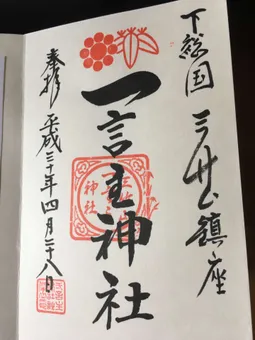 下総国 三竹山鎮座
一言主神社
奉拝 平成三十年四月二十八日
神社